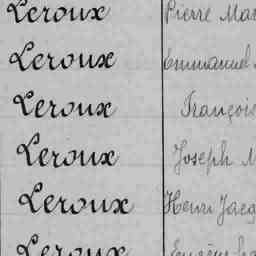 Leroux Pierre Mar
Leroux Emmanuel
Leroux François
Leroux Joseph M
Leroux Henri Jacq
Leroux Eugène